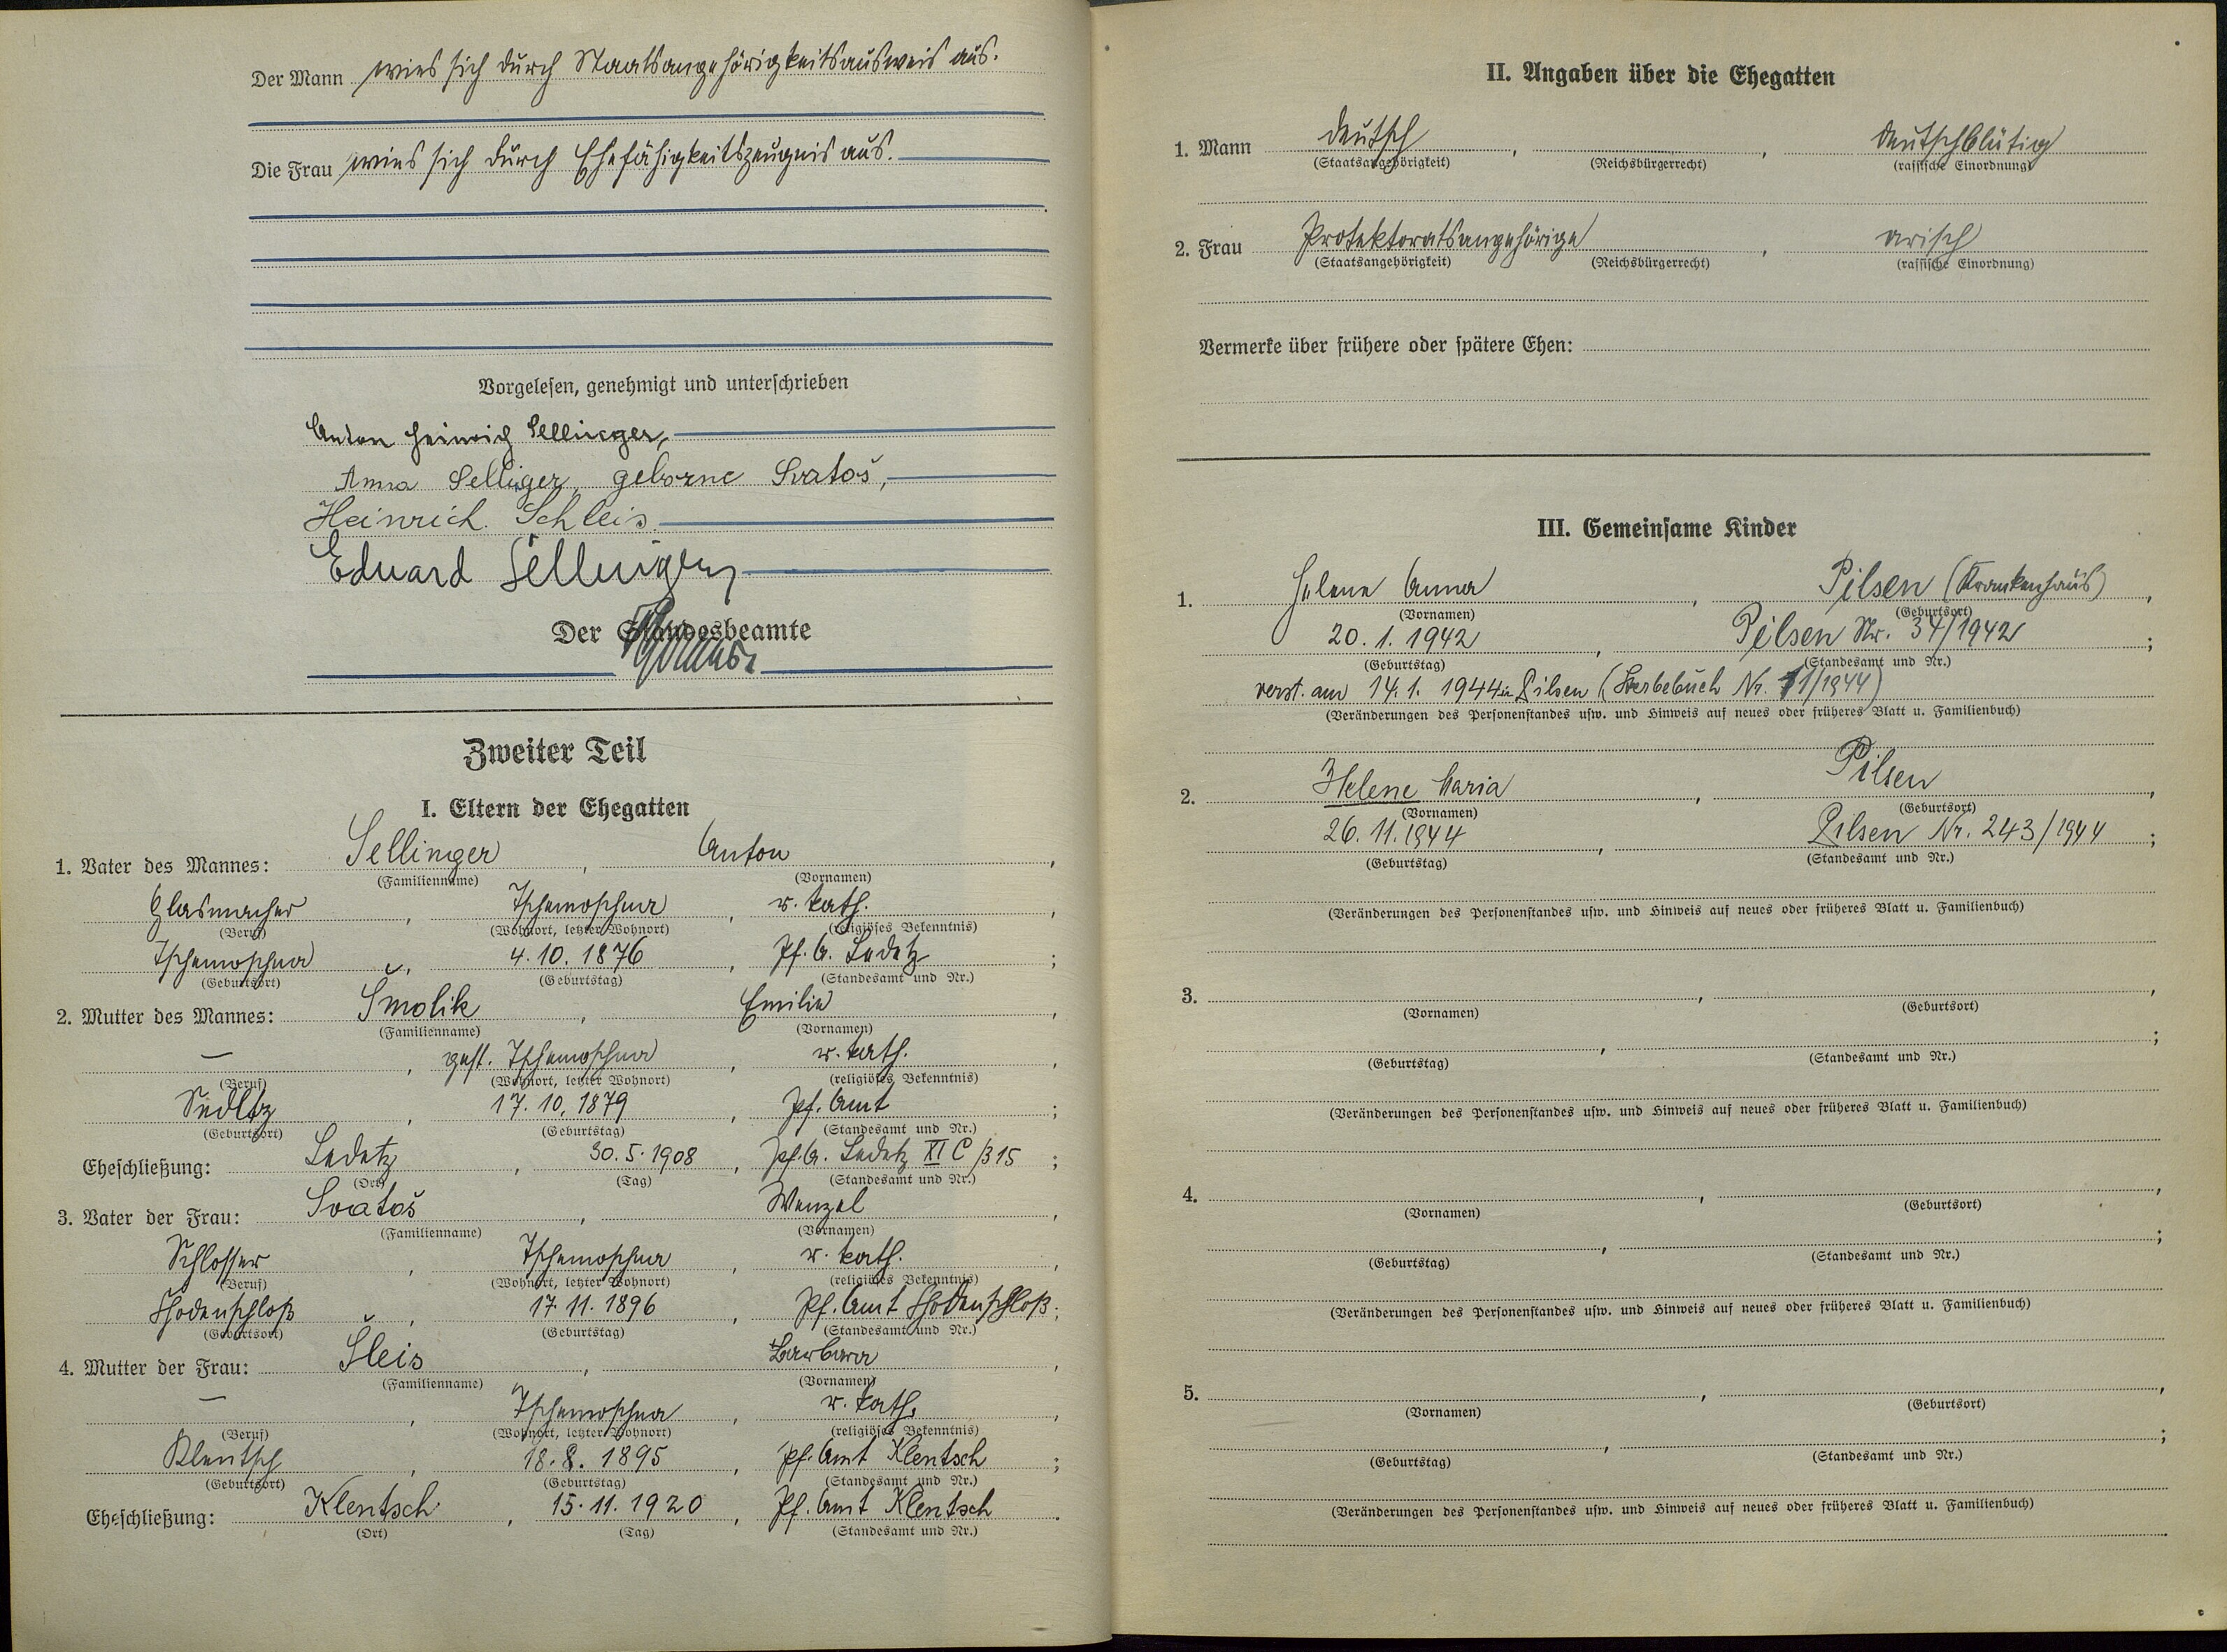 Der Mann wies sich durch Staatsangehörigkeitsausweis aus.
Die Frau wies sich durch Ehefähigkeitszeugnis aus.
Vorgelesen, genehmigt und unterschrieben
Anton Heinrich Sellinger,
Anna Sellinger, geborne Svatoš,
Heinrich Schleis
Eduard Sellinger
Der Standesbeamte
Zweiter Teil
I. Eltern der Ehegatten
1. Vater des Mannes: Sellinger, Anton,
(Familienname) (Vornamen)
Glasmacher, Tschemoschna, r. kath.,
(Beruf) (Wohnort, letzter Wohnort) (religiöses Bekenntnis)
Tschemoschna, 4.10.1876, Pf. A. Ledetz;
(Geburtsort) (Geburtstag) (Standesamt und Nr.)
2. Mutter des Mannes: Šmolik, Emilie,
(Familienname) (Vornamen)
—, gest. Tschemoschna, r. kath.,
(Beruf) (Wohnort, letzter Wohnort) (religiöses Bekenntnis)
17.10.1879, Pf. Amt;
(Geburtsort) (Geburtstag) (Standesamt und Nr.)
Eheschließung: Ledetz, 30.5.1908, Pf. A. Ledetz XI C/315;
(Ort) (Tag) (Standesamt und Nr.)
3. Vater der Frau: Svatoš, Wenzel,
(Familienname) (Vornamen)
Schlosser, Tschemoschna, r. kath.,
(Beruf) (Wohnort, letzter Wohnort) (religiöses Bekenntnis)
Chodenschloß, 17.11.1896, Pf. Amt Chodenschloß;
(Geburtsort) (Geburtstag) (Standesamt und Nr.)
4. Mutter der Frau: Šleis, Barbara,
(Familienname) (Vornamen)
—, Tschemoschna, r. kath.,
(Beruf) (Wohnort, letzter Wohnort) (religiöses Bekenntnis)
Klentsch, 18.8.1895, Pf. Amt Klentsch;
(Geburtsort) (Geburtstag) (Standesamt und Nr.)
Eheschließung: Klentsch, 15.11.1920, Pf. Amt Klentsch.
(Ort) (Tag) (Standesamt und Nr.)
II. Angaben über die Ehegatten
1. Mann deutsch, , deutschblütig
(Staatsangehörigkeit) (Reichsbürgerrecht) (rassische Einordnung)
2. Frau Protektoratsangehörige, arisch
(Staatsangehörigkeit) (Reichsbürgerrecht) (rassische Einordnung)
Vermerke über frühere oder spätere Ehen:
III. Gemeinsame Kinder
1. Helene Anna, Pilsen (Krankenhaus),
(Vornamen) (Geburtsort)
20.1.1942, Pilsen Nr. 34/1942;
(Geburtstag) (Standesamt und Nr.)
verst. am 14.1.1944 in Pilsen (Sterbebuch Nr. 11/1944)
(Veränderungen des Personenstandes usw. und Hinweis auf neues oder früheres Blatt u. Familienbuch)
2. Helene Maria, Pilsen,
(Vornamen) (Geburtsort)
26.11.1944, Pilsen Nr. 243/1944;
(Geburtstag) (Standesamt und Nr.)
(Veränderungen des Personenstandes usw. und Hinweis auf neues oder früheres Blatt u. Familienbuch)
3. , ,
(Vornamen) (Geburtsort)
, ;
(Geburtstag) (Standesamt und Nr.)
(Veränderungen des Personenstandes usw. und Hinweis auf neues oder früheres Blatt u. Familienbuch)
4. , ,
(Vornamen) (Geburtsort)
, ;
(Geburtstag) (Standesamt und Nr.)
(Veränderungen des Personenstandes usw. und Hinweis auf neues oder früheres Blatt u. Familienbuch)
5. , ,
(Vornamen) (Geburtsort)
, ;
(Geburtstag) (Standesamt und Nr.)
(Veränderungen des Personenstandes usw. und Hinweis auf neues oder früheres Blatt u. Familienbuch)